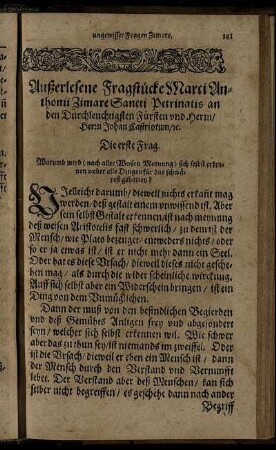 ungewisser Fragen Zimaræ. 141
Außerlesene Fragstücke Marci An-
thonii Zimare Sancti Petrinatis an
den Durchleuchtigsten Fürsten vnd Herrn/
Herrn Johan Castriotum/ıc.
Die erste Frag.
Warumb wird (nach aller Weisen Meinung) sich selbst erken-
nen vnder alle Dingen für das schwä-
rest gehalten?
VJelleicht darumb/ dieweil nichts erkañt mag
werden/ deß gestalt einem vnwissend ist. Aber
sein selbst Gestalt erkennen/ ist nach meynung
deß weisen Aristotelis fast schwerlich/ zu dem ist der
Mensch/ wie Plato bezeuget/ entweders nichts/ oder
so er ja etwas ist/ ist er nicht mehr dann ein Seel.
Oder hat es diese Vrsach/ dieweil dieses nicht gesche-
hen mag/ als durch die wider scheinliche wirckung.
Auff sich selbst aber ein Widerschein bringen/ ist ein
Ding von dem Vnmüglichen.
Dann der muß von den befindlichen Begierden
vnd deß Gemühtes Anligen frey vnd abgesöndert
seyn/ welcher sich selbst erkennen wil. Wie schwer
aber das zu thun sey/ ist niemands im zweiffel. Oder
ist die Vrsach/ dieweil er eben ein Mensch ist/ dann
der Mensch durch den Verstand vnd Vernunfft
lebet. Der Verstand aber deß Menschen/ kan sich
selber nicht begreiffen/ es geschehe dann nach ander
Begriff